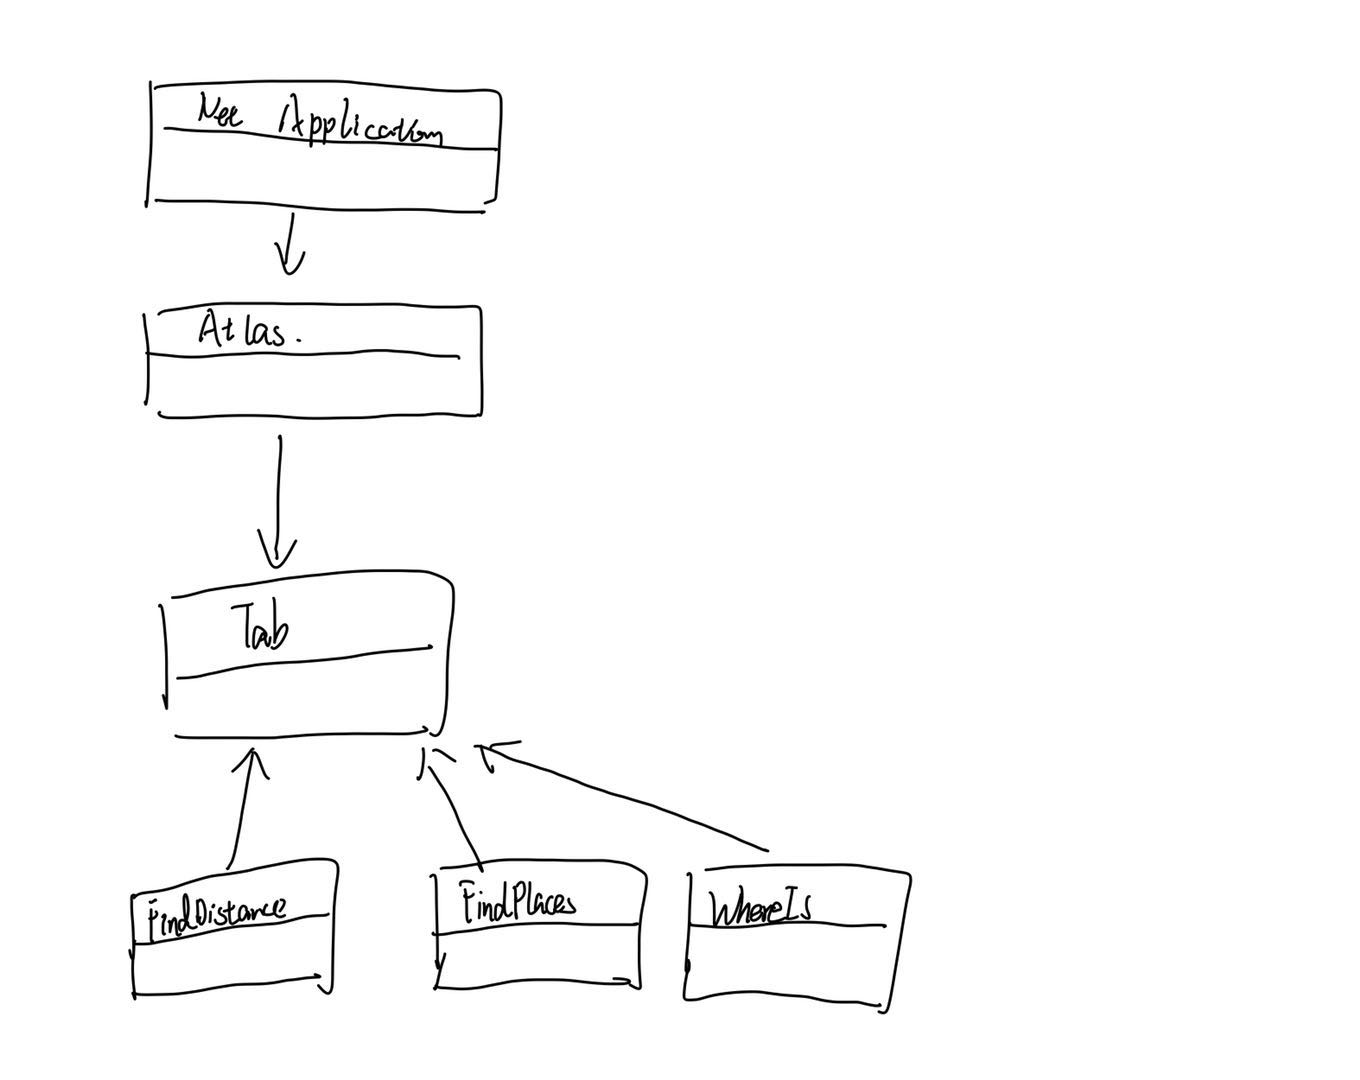 Net Application
Atlas.
Tab
FindDistance
FindPlaces
WhereIs